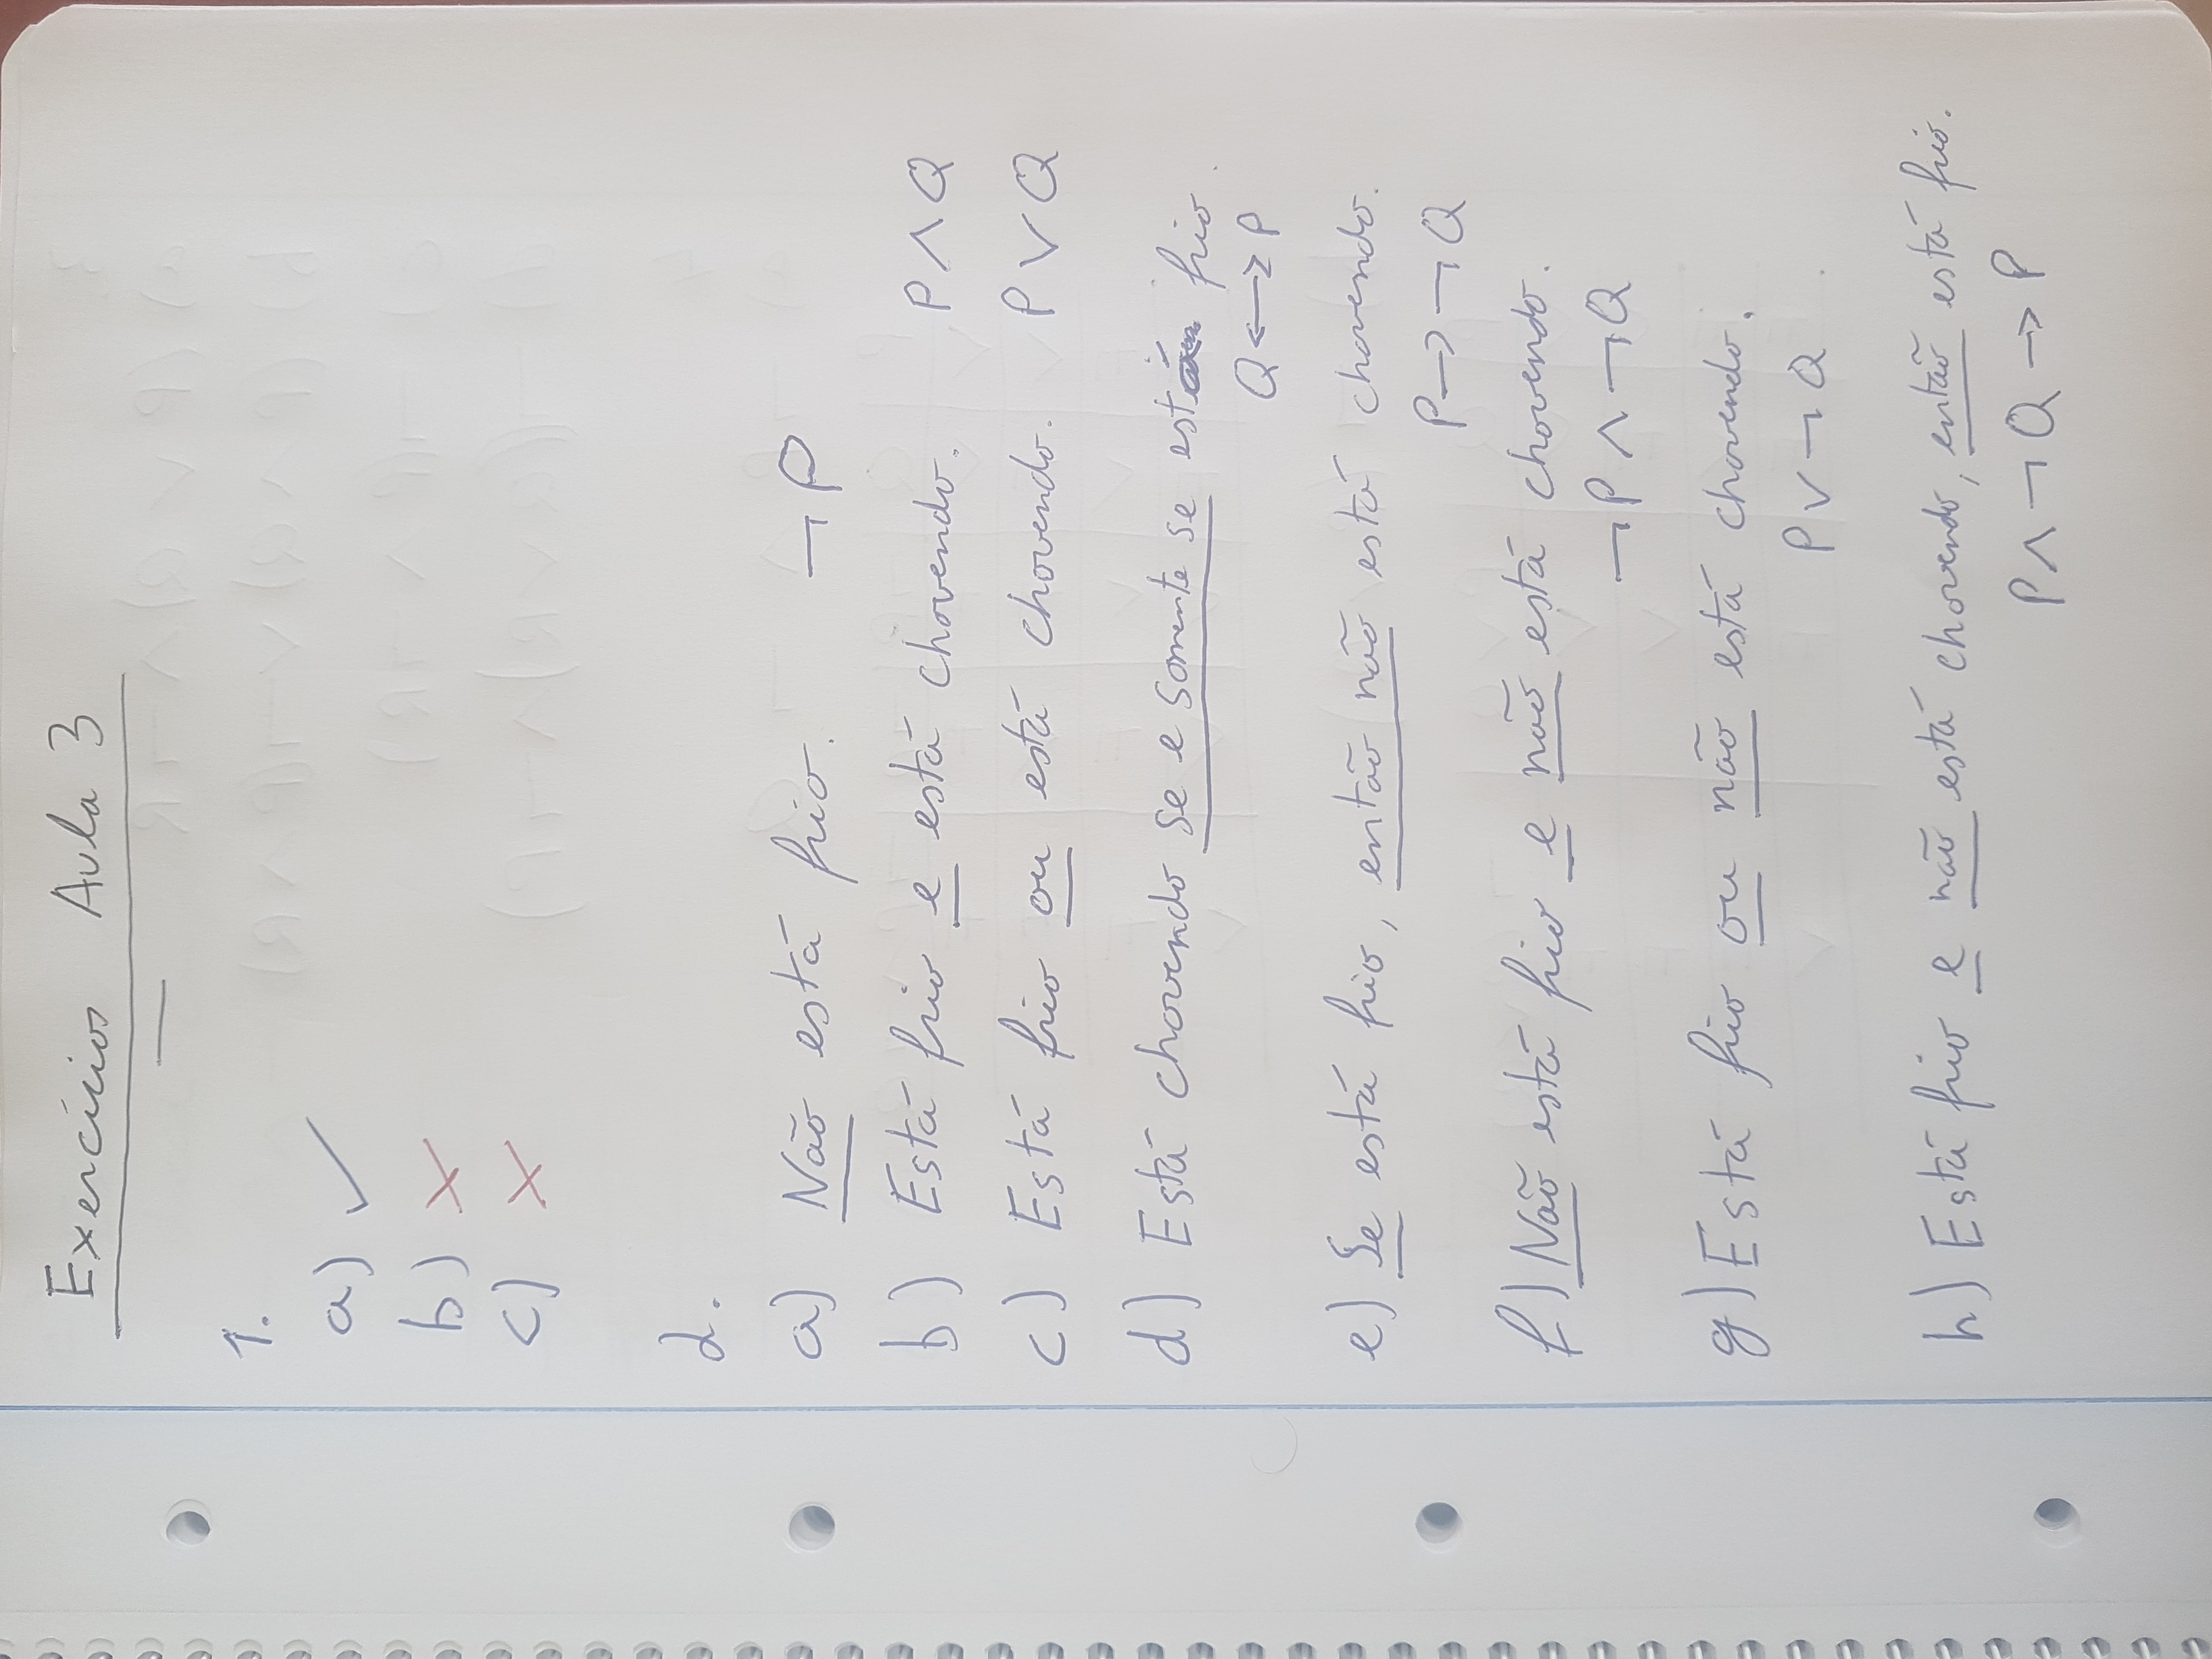 Exercícios Aula 3
1.
a) ✓
b) ✗
c) ✗
2.
a) Não está frio. ¬P
b) Está frio e está chovendo. P∧Q
c) Está frio ou está chovendo. P∨Q
d) Está chovendo se e somente se está frio.
Q↔P
e) Se está frio, então não está chovendo.
P→¬Q
f) Não está frio e não está chovendo.
¬P∧¬Q
g) Está frio ou não está chovendo.
P∨¬Q
h) Está frio e não está chovendo, então está frio.
P∧¬Q→P